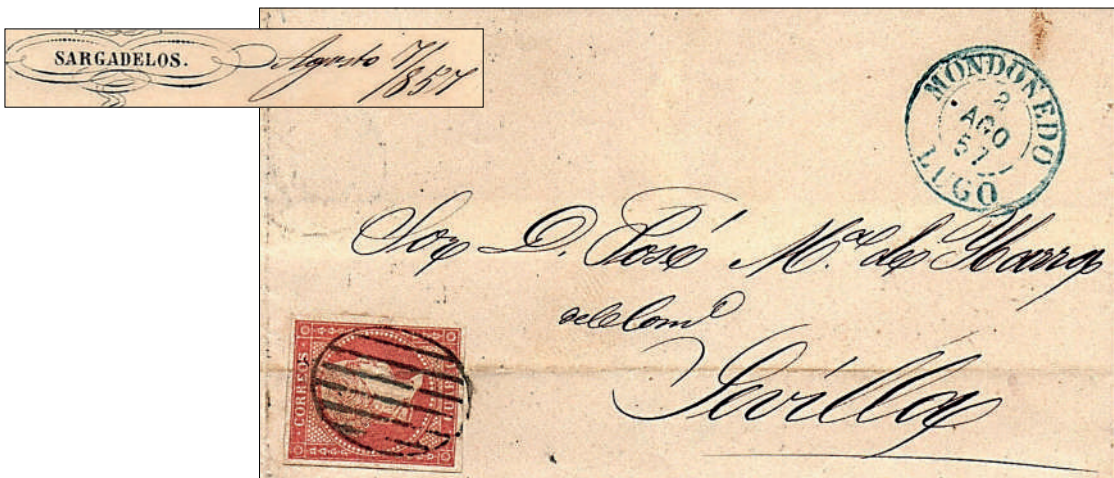 SARGADELOS.
Agosto 7/857
MONDOÑEDO
2
AGO
57
LUGO
Sor D. José Mª de Ybarra
del Comº
Sevilla
CORREOS